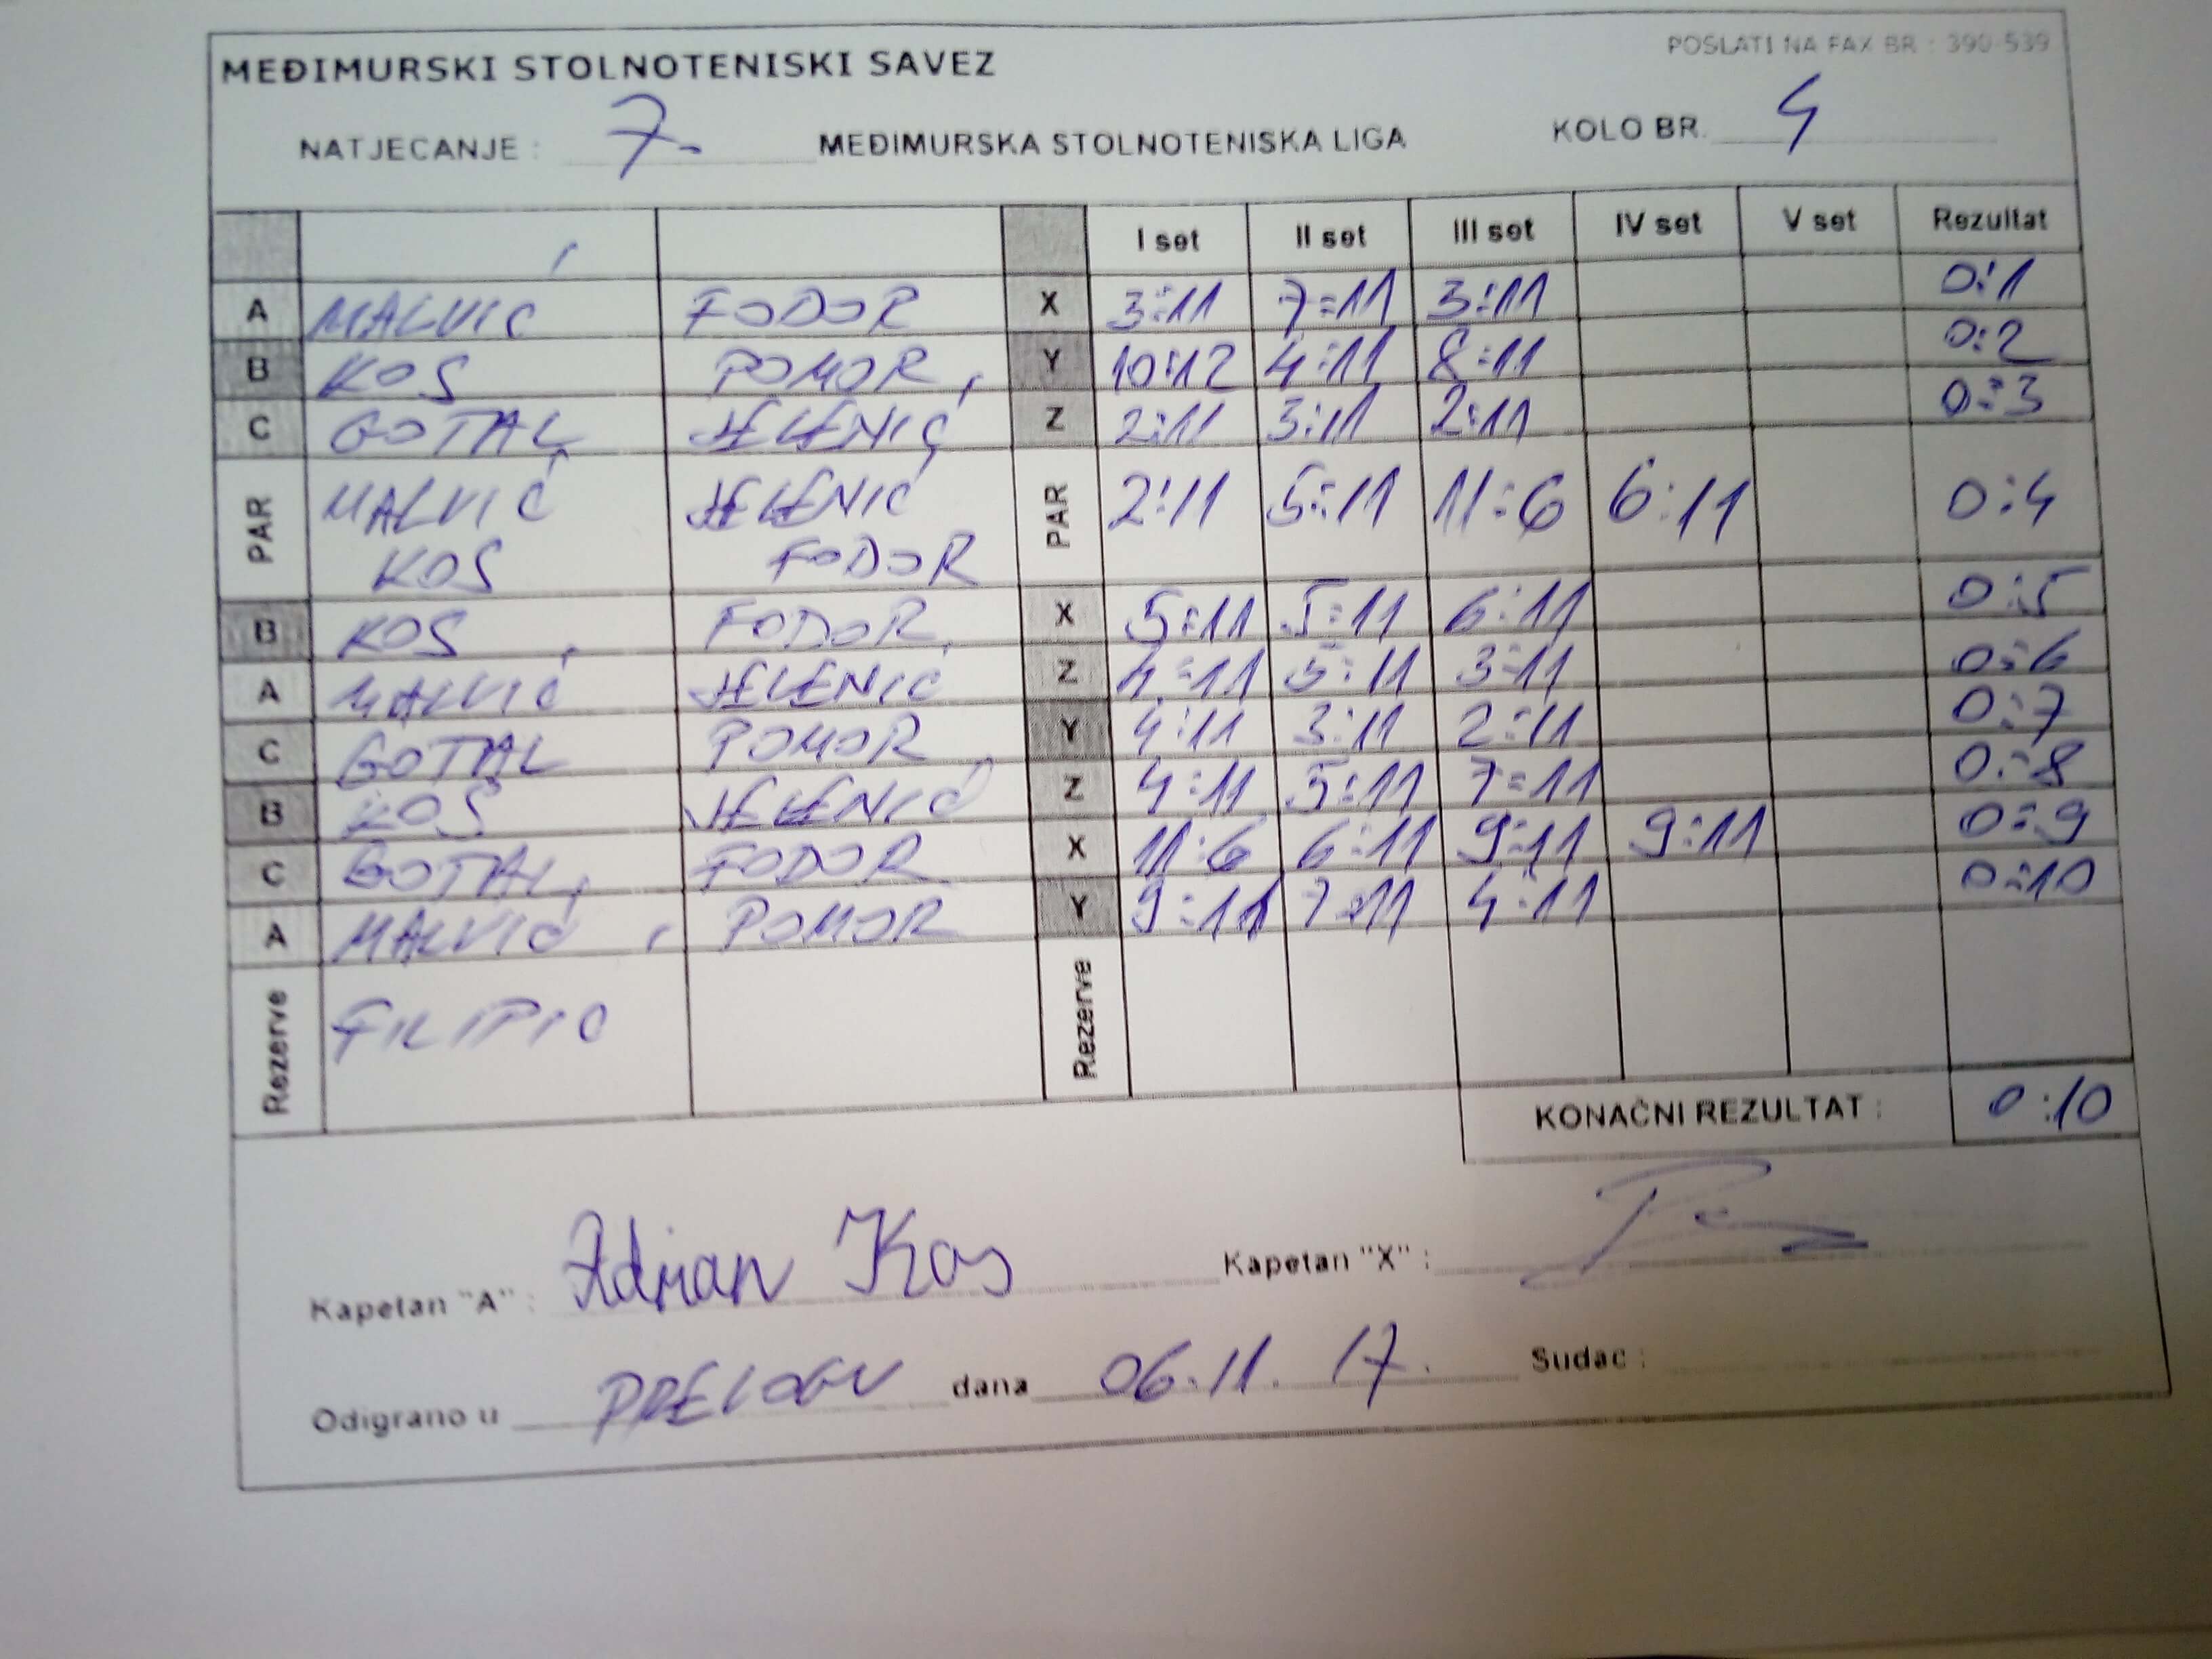 MEĐIMURSKI STOLNOTENISKI SAVEZ
POSLATI NA FAX BR : 390-539
NATJECANJE : 7. MEĐIMURSKA STOLNOTENISKA LIGA KOLO BR. 4
I set II set III set IV set V set Rezultat
A MALVIĆ FODOR X 3:11 7:11 3:11 0:1
B KOS POMOR Y 10:12 4:11 8:11 0:2
C GOTAL JELENIĆ Z 2:11 3:11 2:11 0:3
PAR MALVIĆ JELENIĆ PAR 2:11 5:11 11:6 6:11 0:4
KOS FODOR
B KOS FODOR X 5:11 5:11 6:11 0:5
A MALVIĆ JELENIĆ Z 4:11 5:11 3:11 0:6
C GOTAL POMOR Y 4:11 3:11 2:11 0:7
B KOS JELENIĆ Z 4:11 5:11 7:11 0:8
C GOTAL FODOR X 11:6 6:11 9:11 9:11 0:9
A MALVIĆ POMOR Y 9:11 7:11 4:11 0:10
Rezerve FILIPIC Rezerve
KONAČNI REZULTAT : 0:10
Kapetan "A" : Adrian Kos Kapetan "X" :
Odigrano u PRELOGU dana 06.11.17. Sudac :